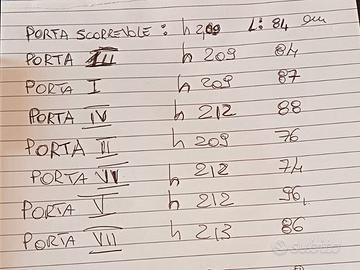 PORTA SCORREVOLE : h 209 L: 84 cm
PORTA III h 209 84
PORTA I h 209 87
PORTA IV h 212 88
PORTA II h 209 76
PORTA VI h 212 74
PORTA V h 212 96
PORTA VII h 213 86
subito